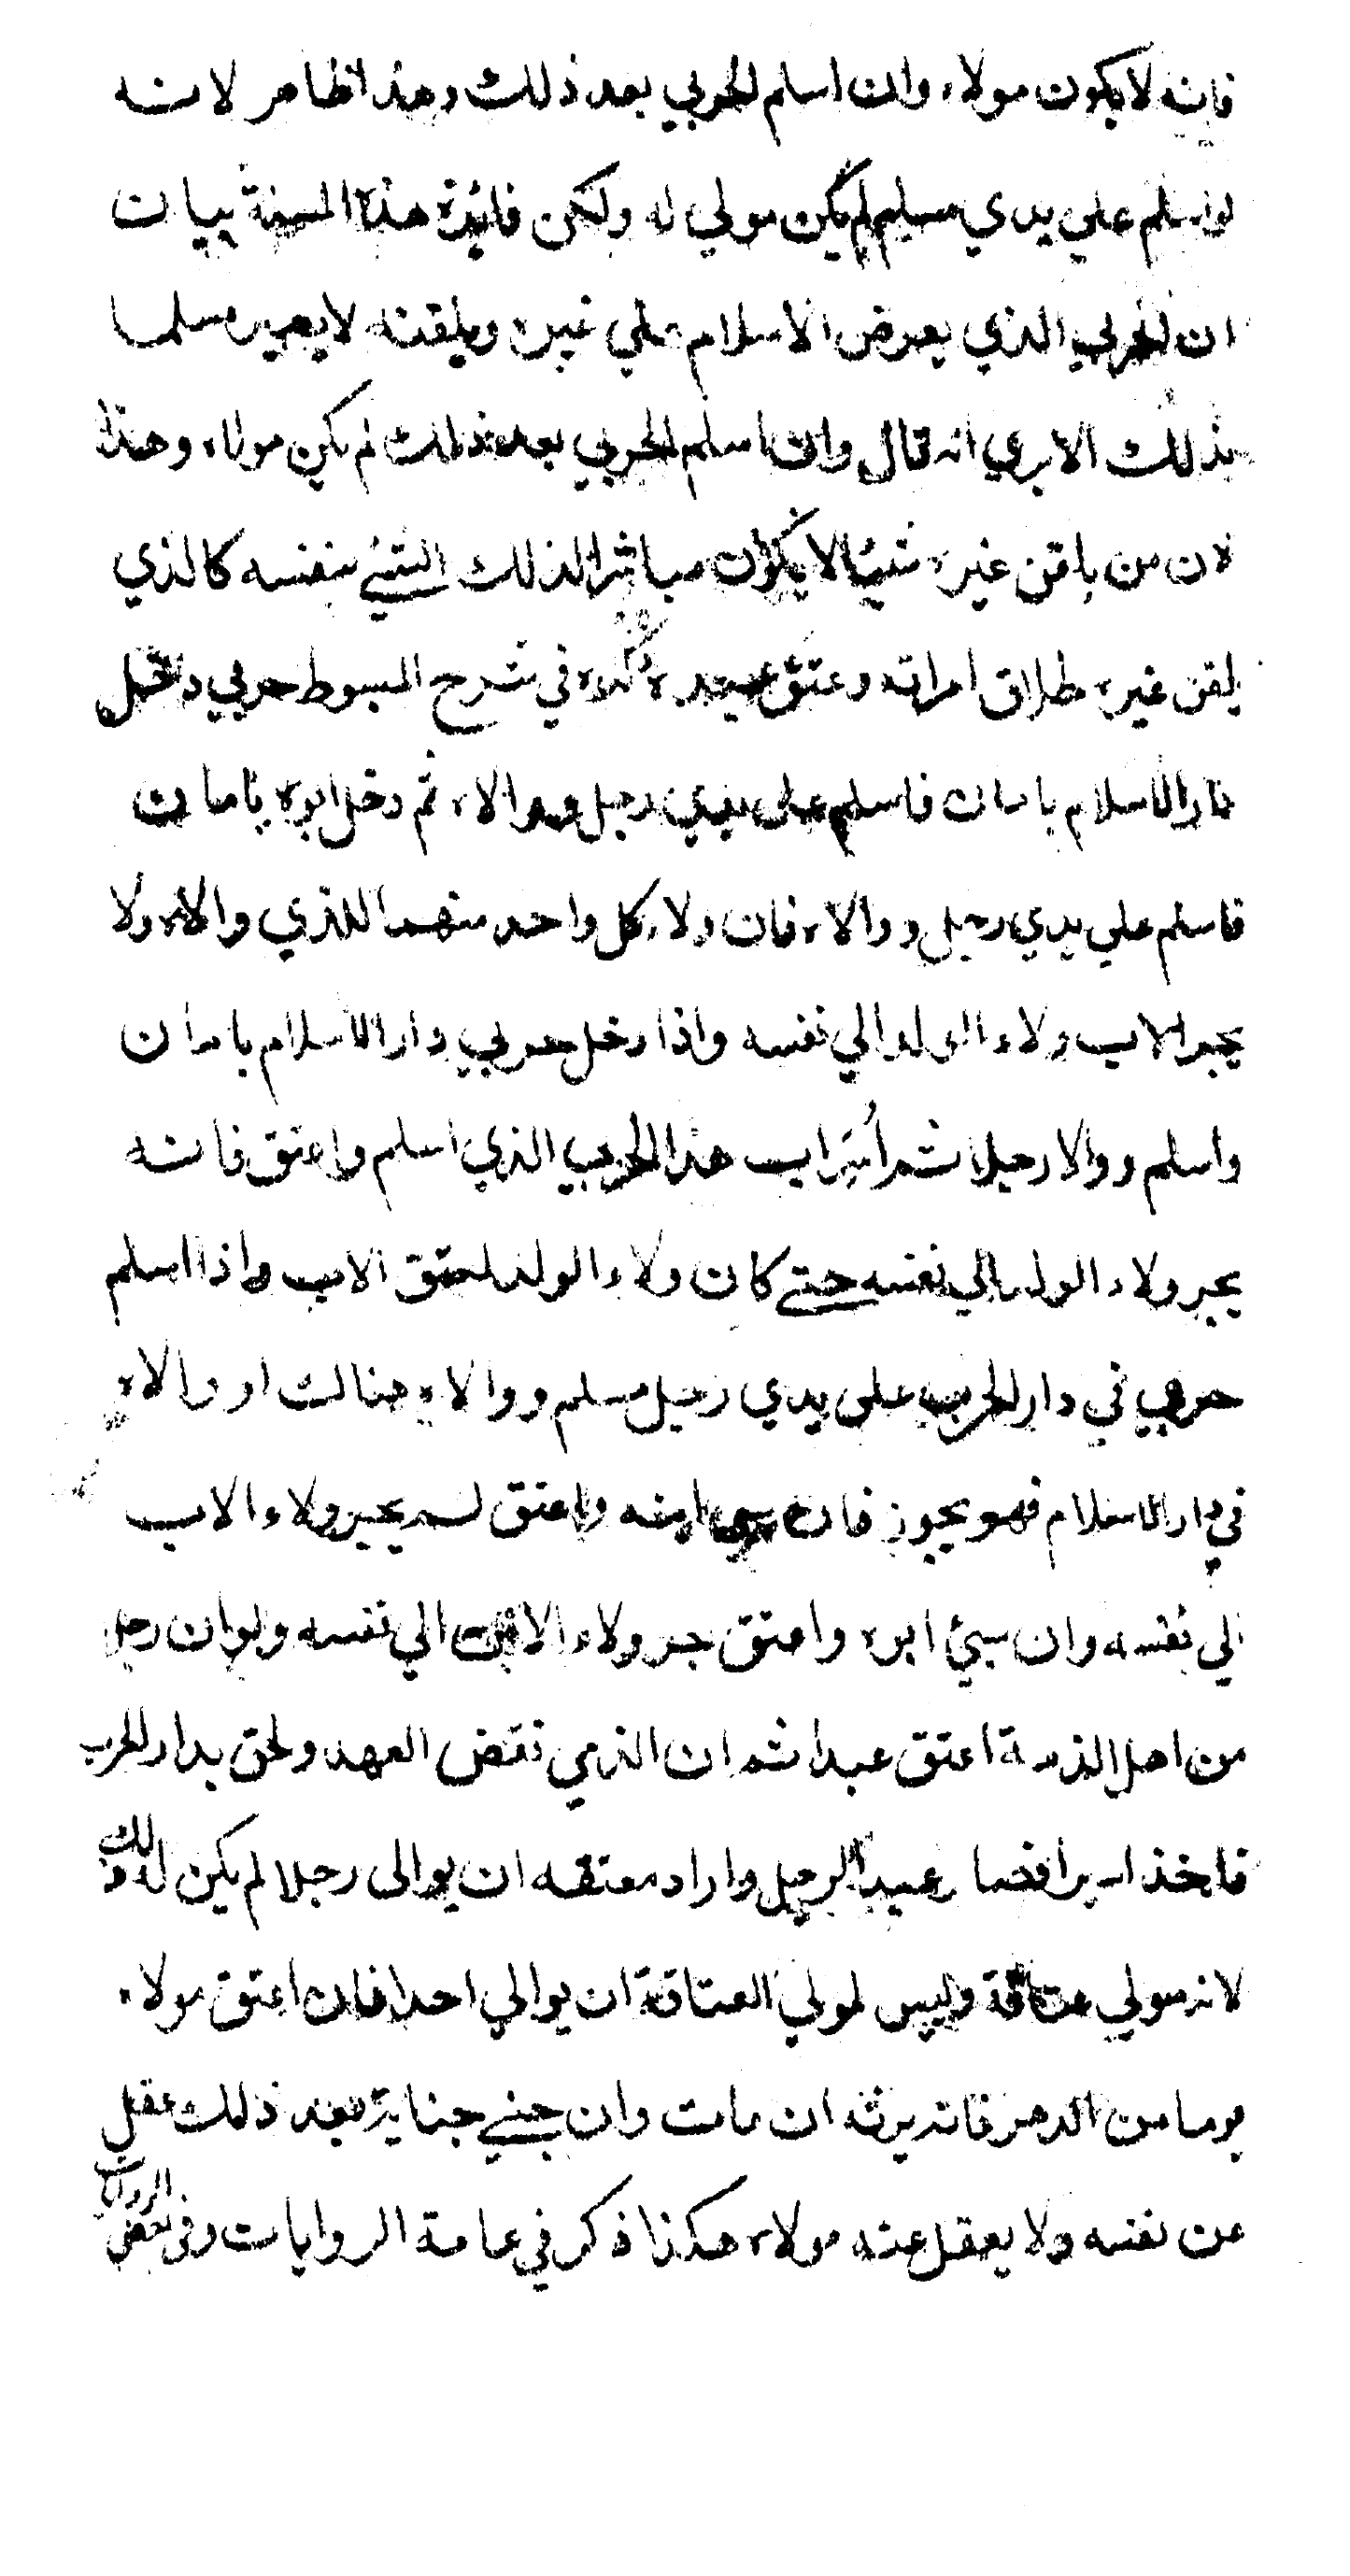 فانه لا يكون مولاه وان اسلم الحربي بعد ذلك وهذا ظاهر لانه
لو اسلم علي يدي مسلم لم يكن مولي له ولكن فائدة هذه المسئلة بيان
ان الحربي الذي يعرض الاسلام علي غيره ويلقنه لا يصير مسلما
بذلك الا يري انه قال وان اسلم الحربي بعد ذلك لم يكن مولاه وهذا
لان من يلقن غيره شيئا لا يكون مباشرا لذلك الشئ بنفسه كالذي
يلقن غيره طلاق امراته وعتق عبده في شرح المبسوط حربي دخل
دار الاسلام بامان فاسلم على يدي رجل ووالاه ثم دخل ابوه بامان
فاسلم علي يدي رجل ووالاه فان ولاء كل واحد منهما للذي والاه ولا
يجر الاب ولاء الولد الي نفسه واذا دخل حربي دار الاسلام بامان
واسلم ووالا رجلا ثم أسر اب هذا الحربي الذي اسلم واعتق فانه
يجر ولاء الولد الي نفسه حتي كان ولاء الولد لمعتق الاب واذا اسلم
حربي في دار الحرب على يدي رجل مسلم ووالاه هنالك او والاه
في دار الاسلام فهو يجوز فان سبي ابنه واعتق لم يجر ولاء الاب
الي نفسه وان سبئ ابوه واعتق جر ولاء الابن الي نفسه ولو ان رجل
من اهل الذمة اعتق عبدا ثم ان الذمي نقض العهد ولحق بدار الحرب
فاخذ اسيرا فصار عبدا لرجل واراد معتقه ان يوالى رجلا لم يكن له ذلك
لانه مولي عتاقة وليس لمولي العتاقة ان يوالي احدا فان اعتق مولاه
يوما من الدهر فانه يرثه ان مات وان جني جناية بعد ذلك عقل
عن نفسه ولا يعقل عنه مولاه هكذا ذكر في عامة الروايات وفى بعض الروايات